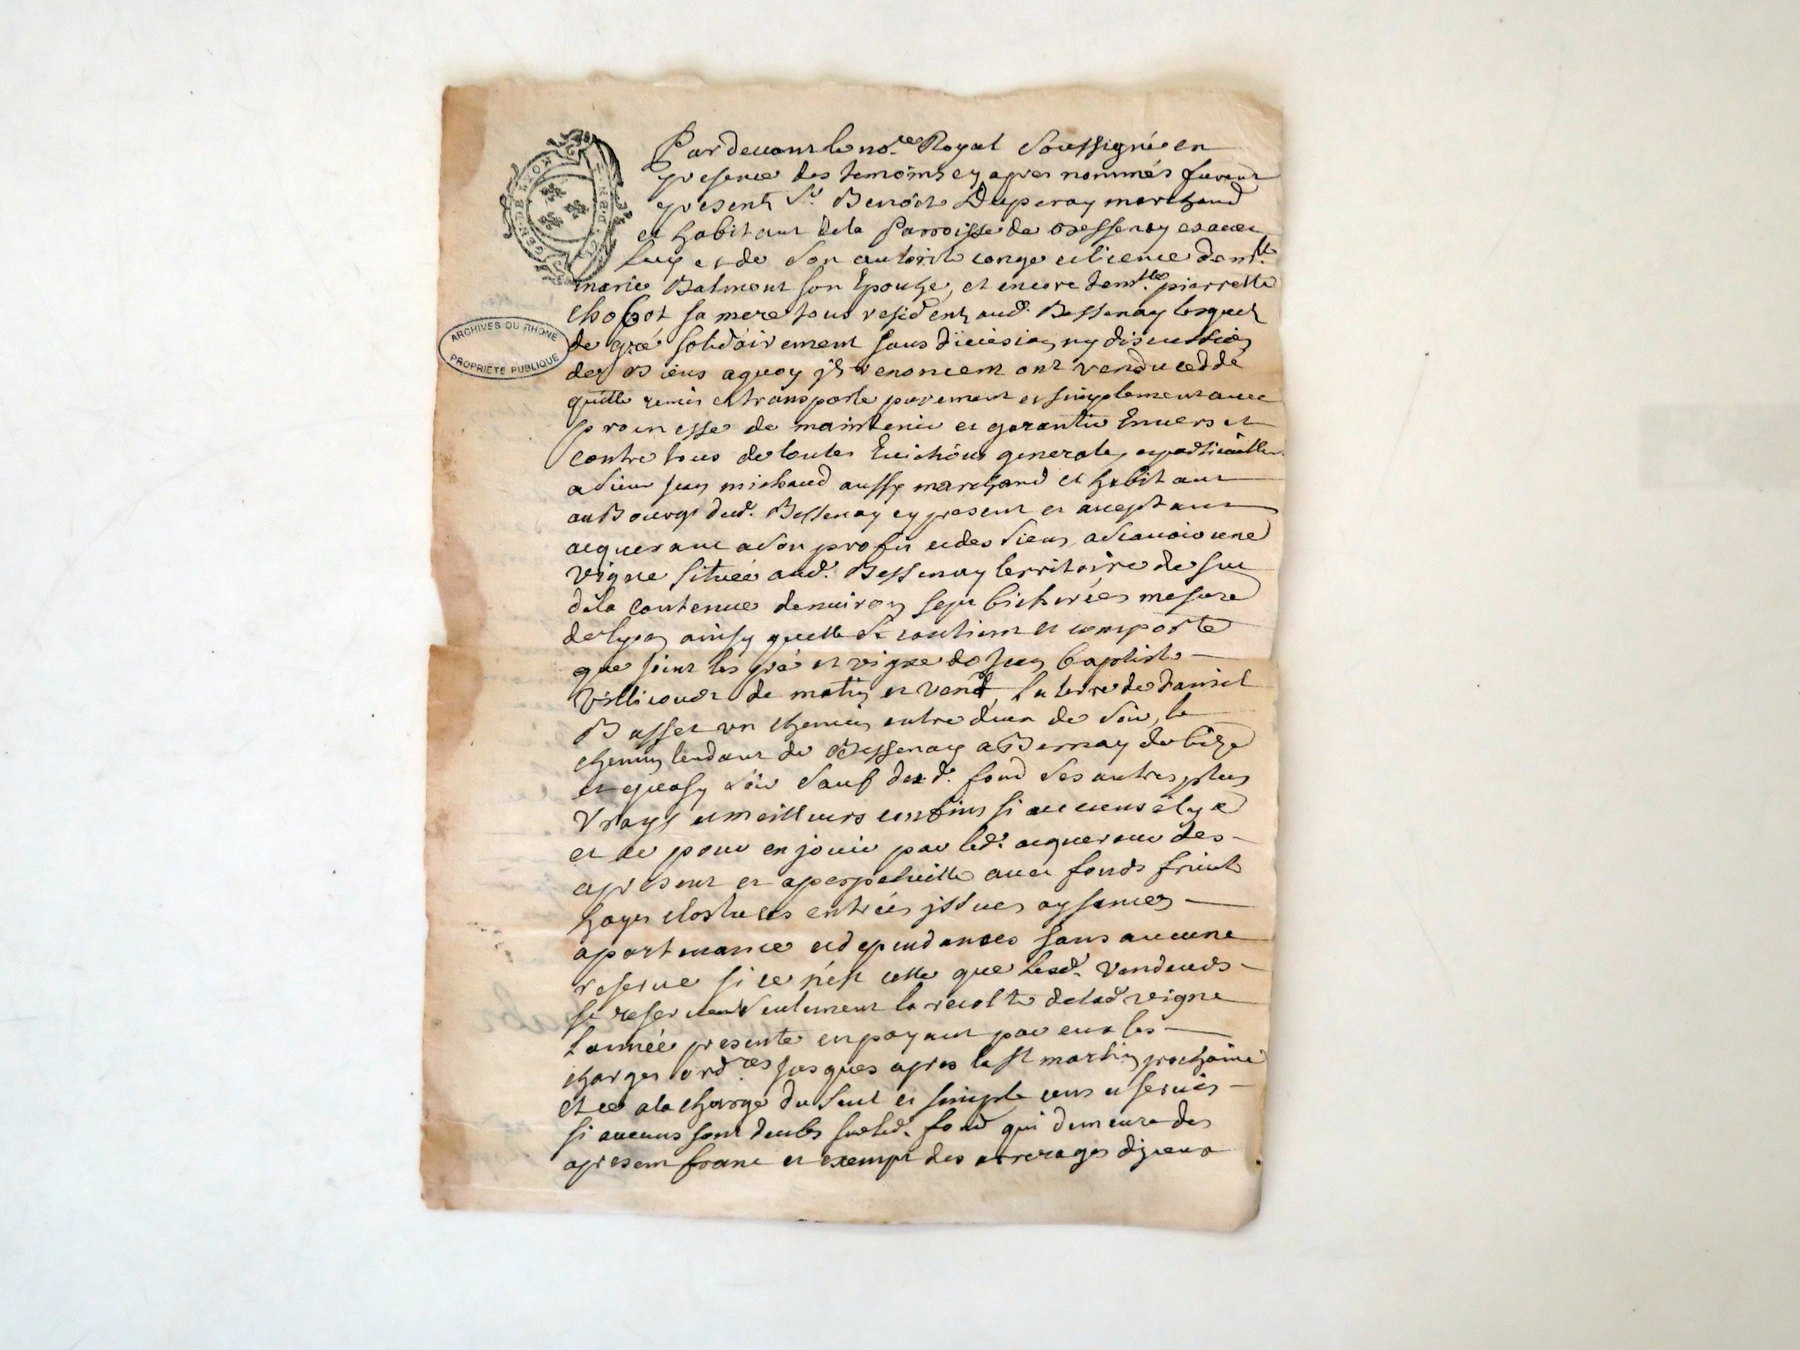 GEN. DE LYON
ARCHIVES DU RHONE
PROPRIÉTÉ PUBLIQUE
Pardevant le no.re Royal Soussigné en
presence des temoins cy apres nommés furent
presents Sr. Benoit Duperay marchand
et habitant de la Parroisse de Bessenay et avec
luy et de son autorite conge et licence dem.lle
marie Balmont son Epouze, et encore dem.lle pierrette
sa mere tous residents aud. Bessenay lesquels
de gré solidairement sans division ny discussion
des Biens aquoy jls renoncent ont vendu ceddé
quitté remis et transporté purement et simplement avec
promesse de maintenir et garantir Envers et
contre tous de toutes Evictions generale, et particuliere
a sieur jean michaud aussy marchand et habitant
au Bourg dud. Bessenay cy present et aceptant
acquerant a son profit et des siens ascavoir une
vigne située aud. Bessenay territoire de
de la contenue denviron sept bicherées mesure
de lyon ainsy quelle se contient et comporte
que joint les pré et vigne de jean baptiste
de matin et vent, la terre de daniel
Basset un chemin entre deux de soir, le
chemin tendant de Bessenay a Bernay de bize
et quasy soir sauf dud. fond ses autres plus
vrays et meilleurs confins si aucuns il y a
et ce pour en jouir par led. acquereur des
apresent et aperpetuitte avec fonds fruits
hayes clostures entrées jssues aysances
apartenance et dependances sans aucune
reserve si ce n'est celle que lesd. vendeurs
se reservent seulement la recolte de lad. vigne
lannée presente en payant par eux les
charges ord.res jusques apres la st martin prochaine
et ce a la charge du seul et simple cens et servis
si aucuns sont deubs sur led. fond qui demeure des
apresent franc et exempt des arrerages diceux